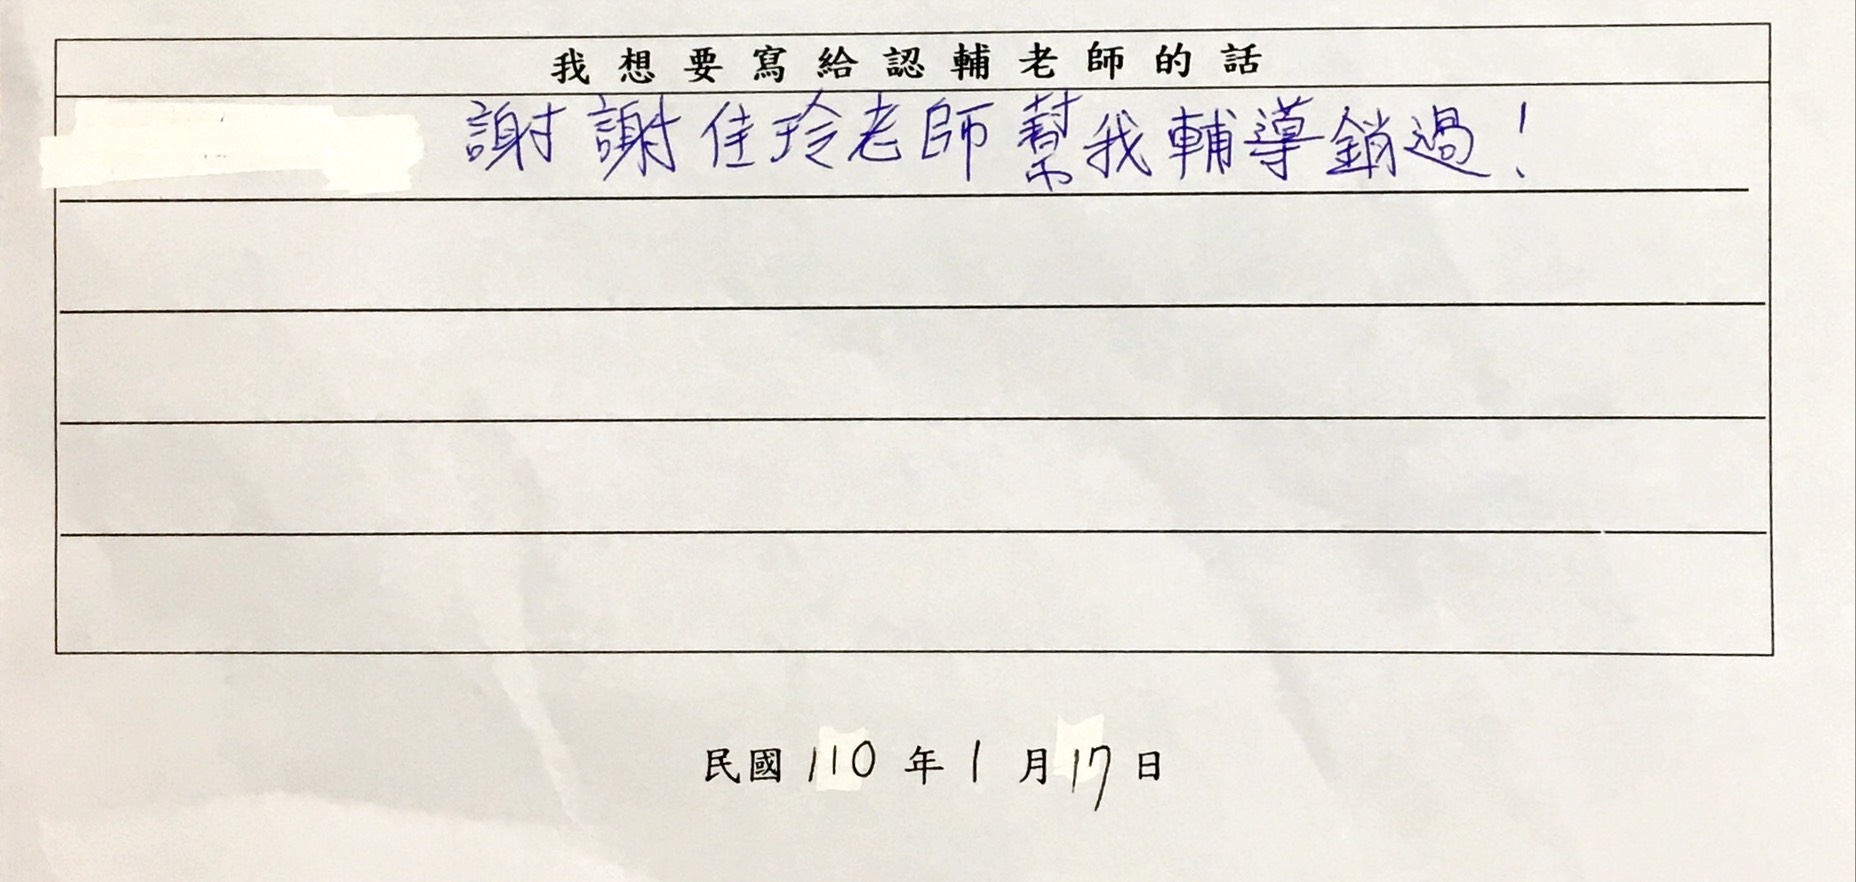 我想要寫給認輔老師的話
謝謝佳玲老師幫我輔導銷過！
民國110年1月17日